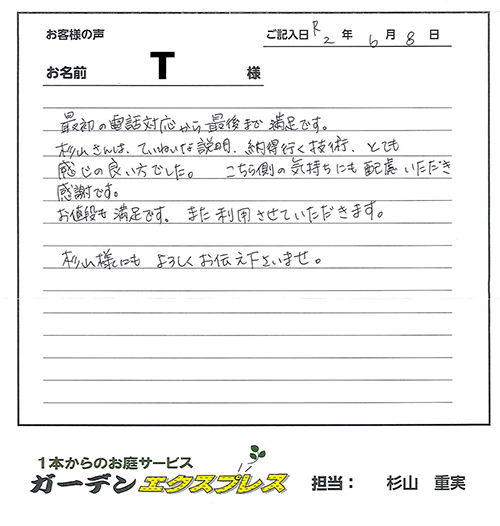 お客様の声
ご記入日 R2 年 6 月 8 日
お名前 T 様
最初の電話対応から最後まで満足です。
杉山さんは、ていねいな説明、納得行く技術、とても
感じの良い方でした。 こちら側の気持ちにも配慮いただき
感謝です。
お値段も満足です。また利用させていただきます。
杉山様にも よろしくお伝え下さいませ。
1本からのお庭サービス
ガーデンエクスプレス 担当： 杉山 重実